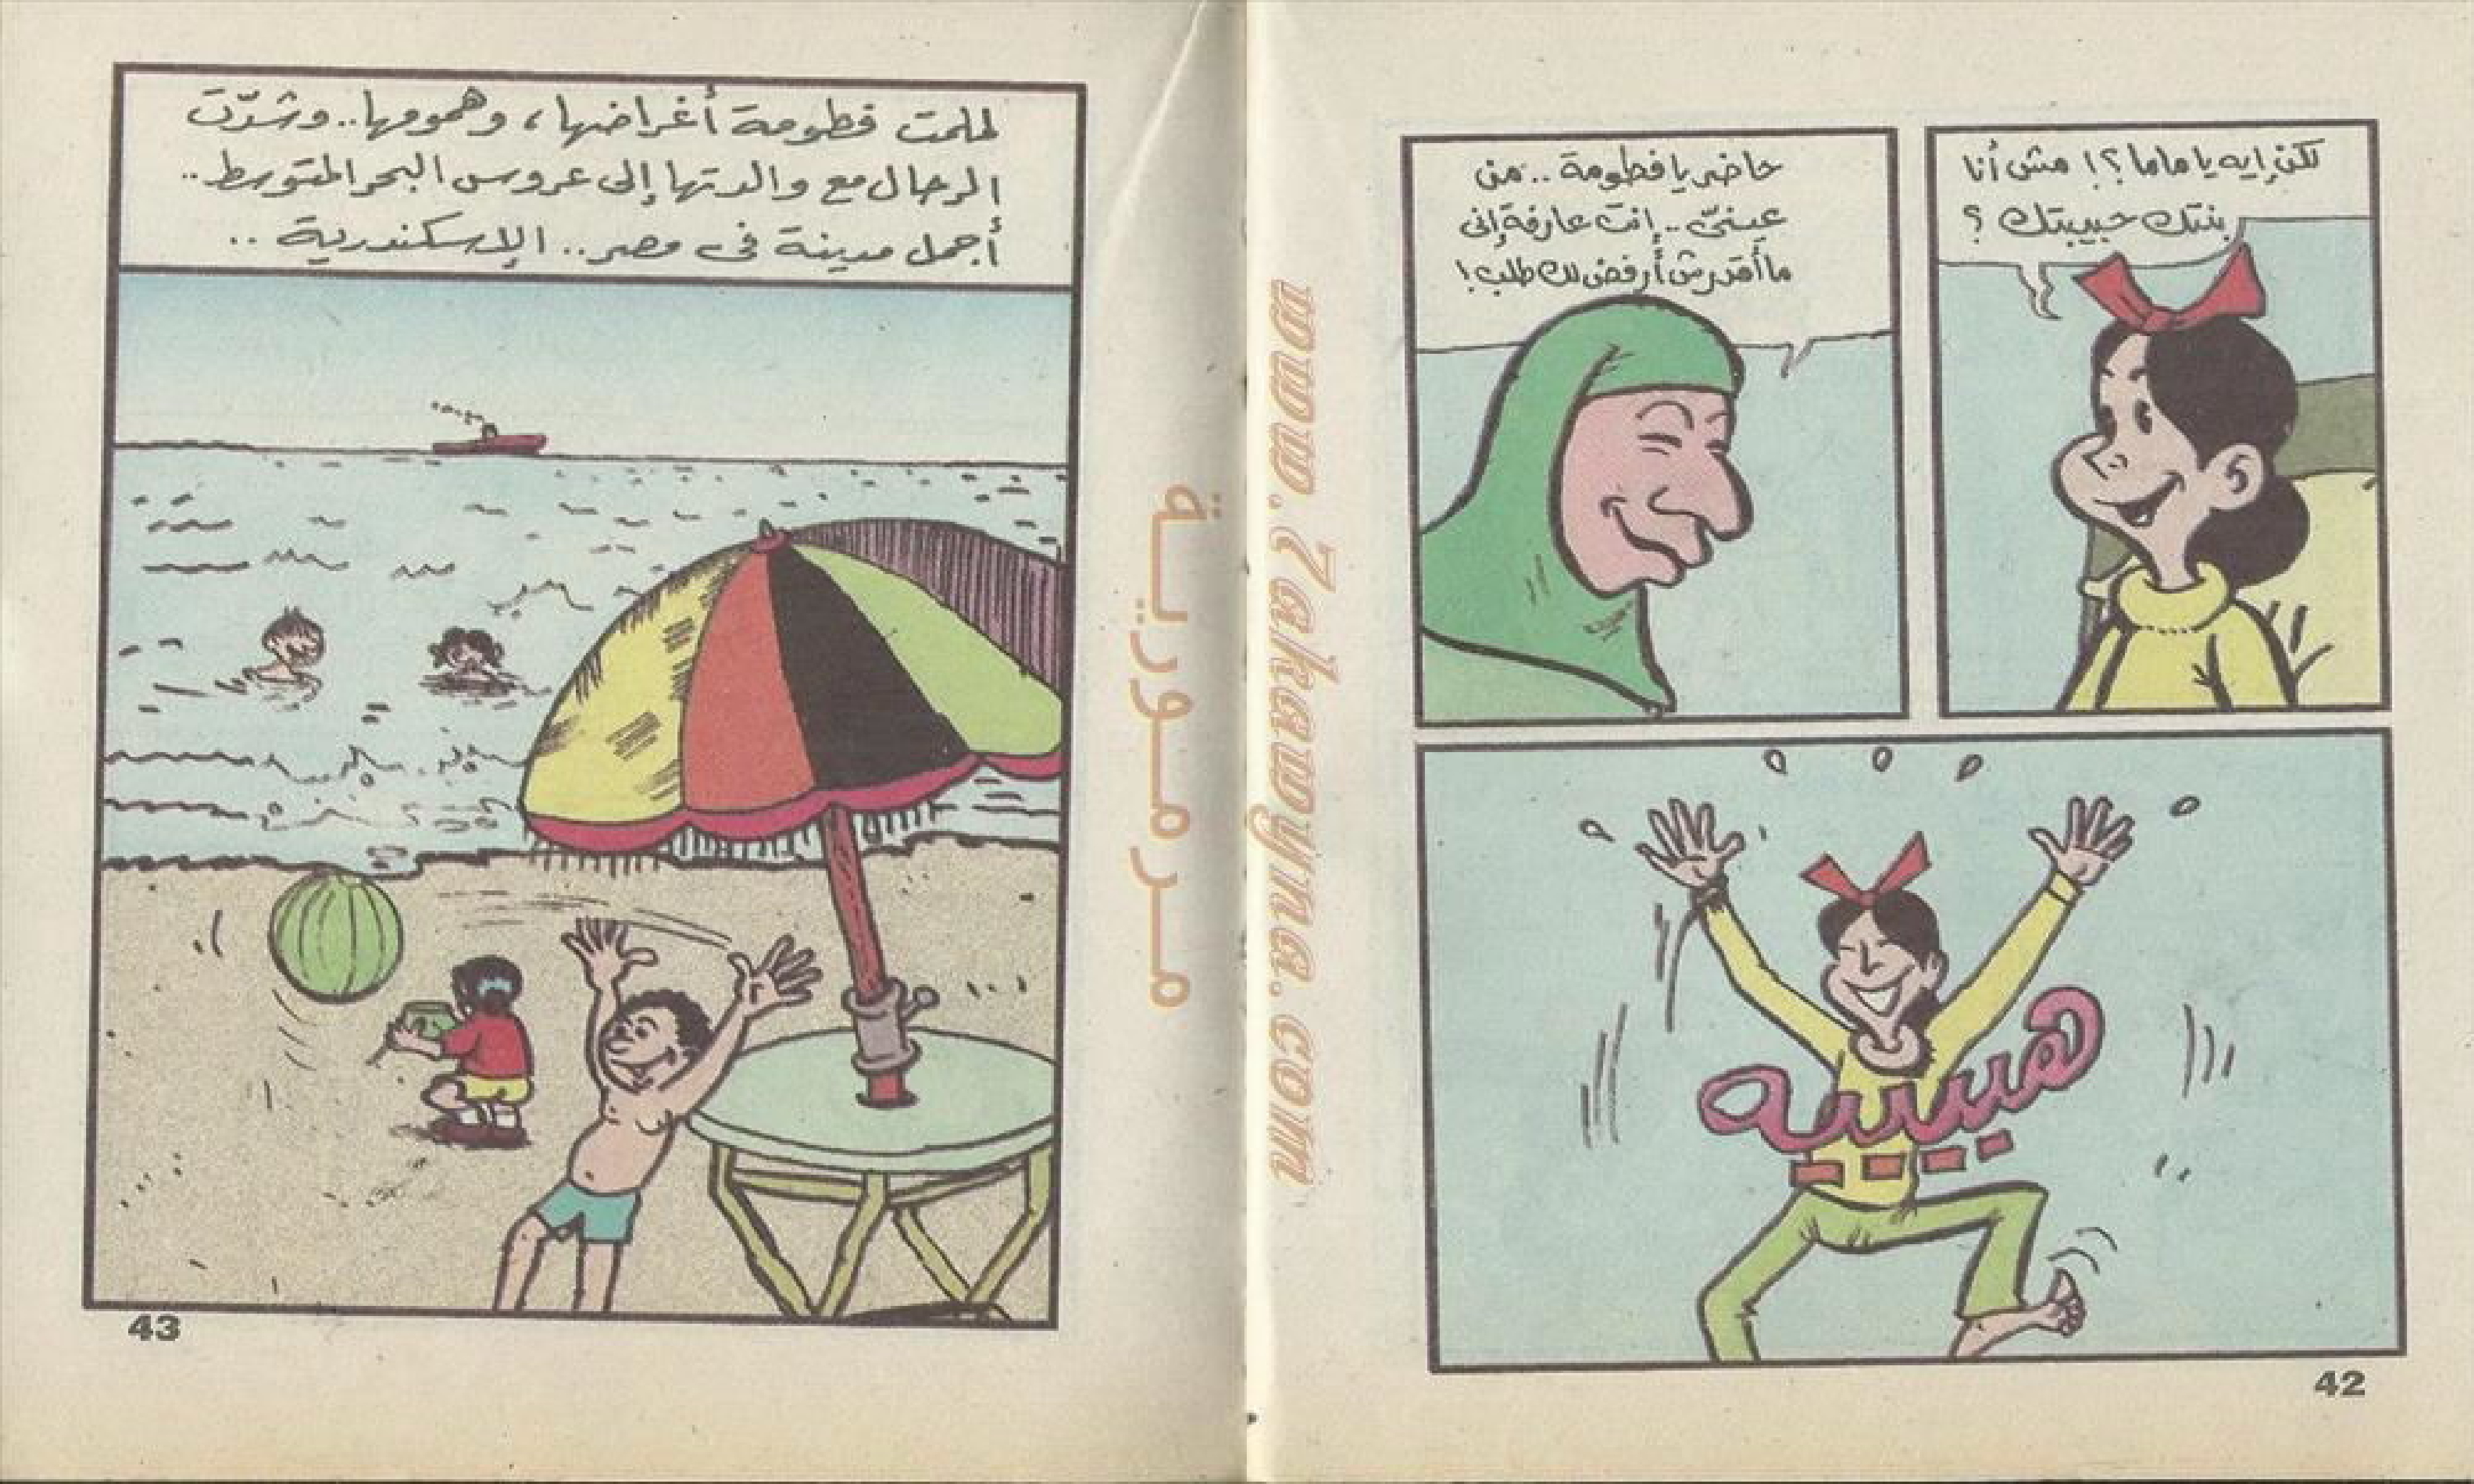 لكن إيه يا ماما ؟! مش أنا
بنتك حبيبتك ؟
حاضر يا فطومة .. من
عينيّ .. إنت عارفة إنى
ما أقدرش أرفض لك طلب !
هيييييه
42
www.7akawyna.com
مرمورية
لملمت فطومة أغراضها ، وهمومها .. وشدّت
الرحال مع والدتها إلى عروس البحر المتوسط ..
أجمل مدينة فى مصر .. الإسكندرية ..
43